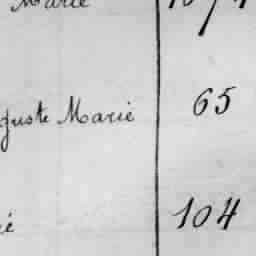 Marie
guste Marie 65
é 104